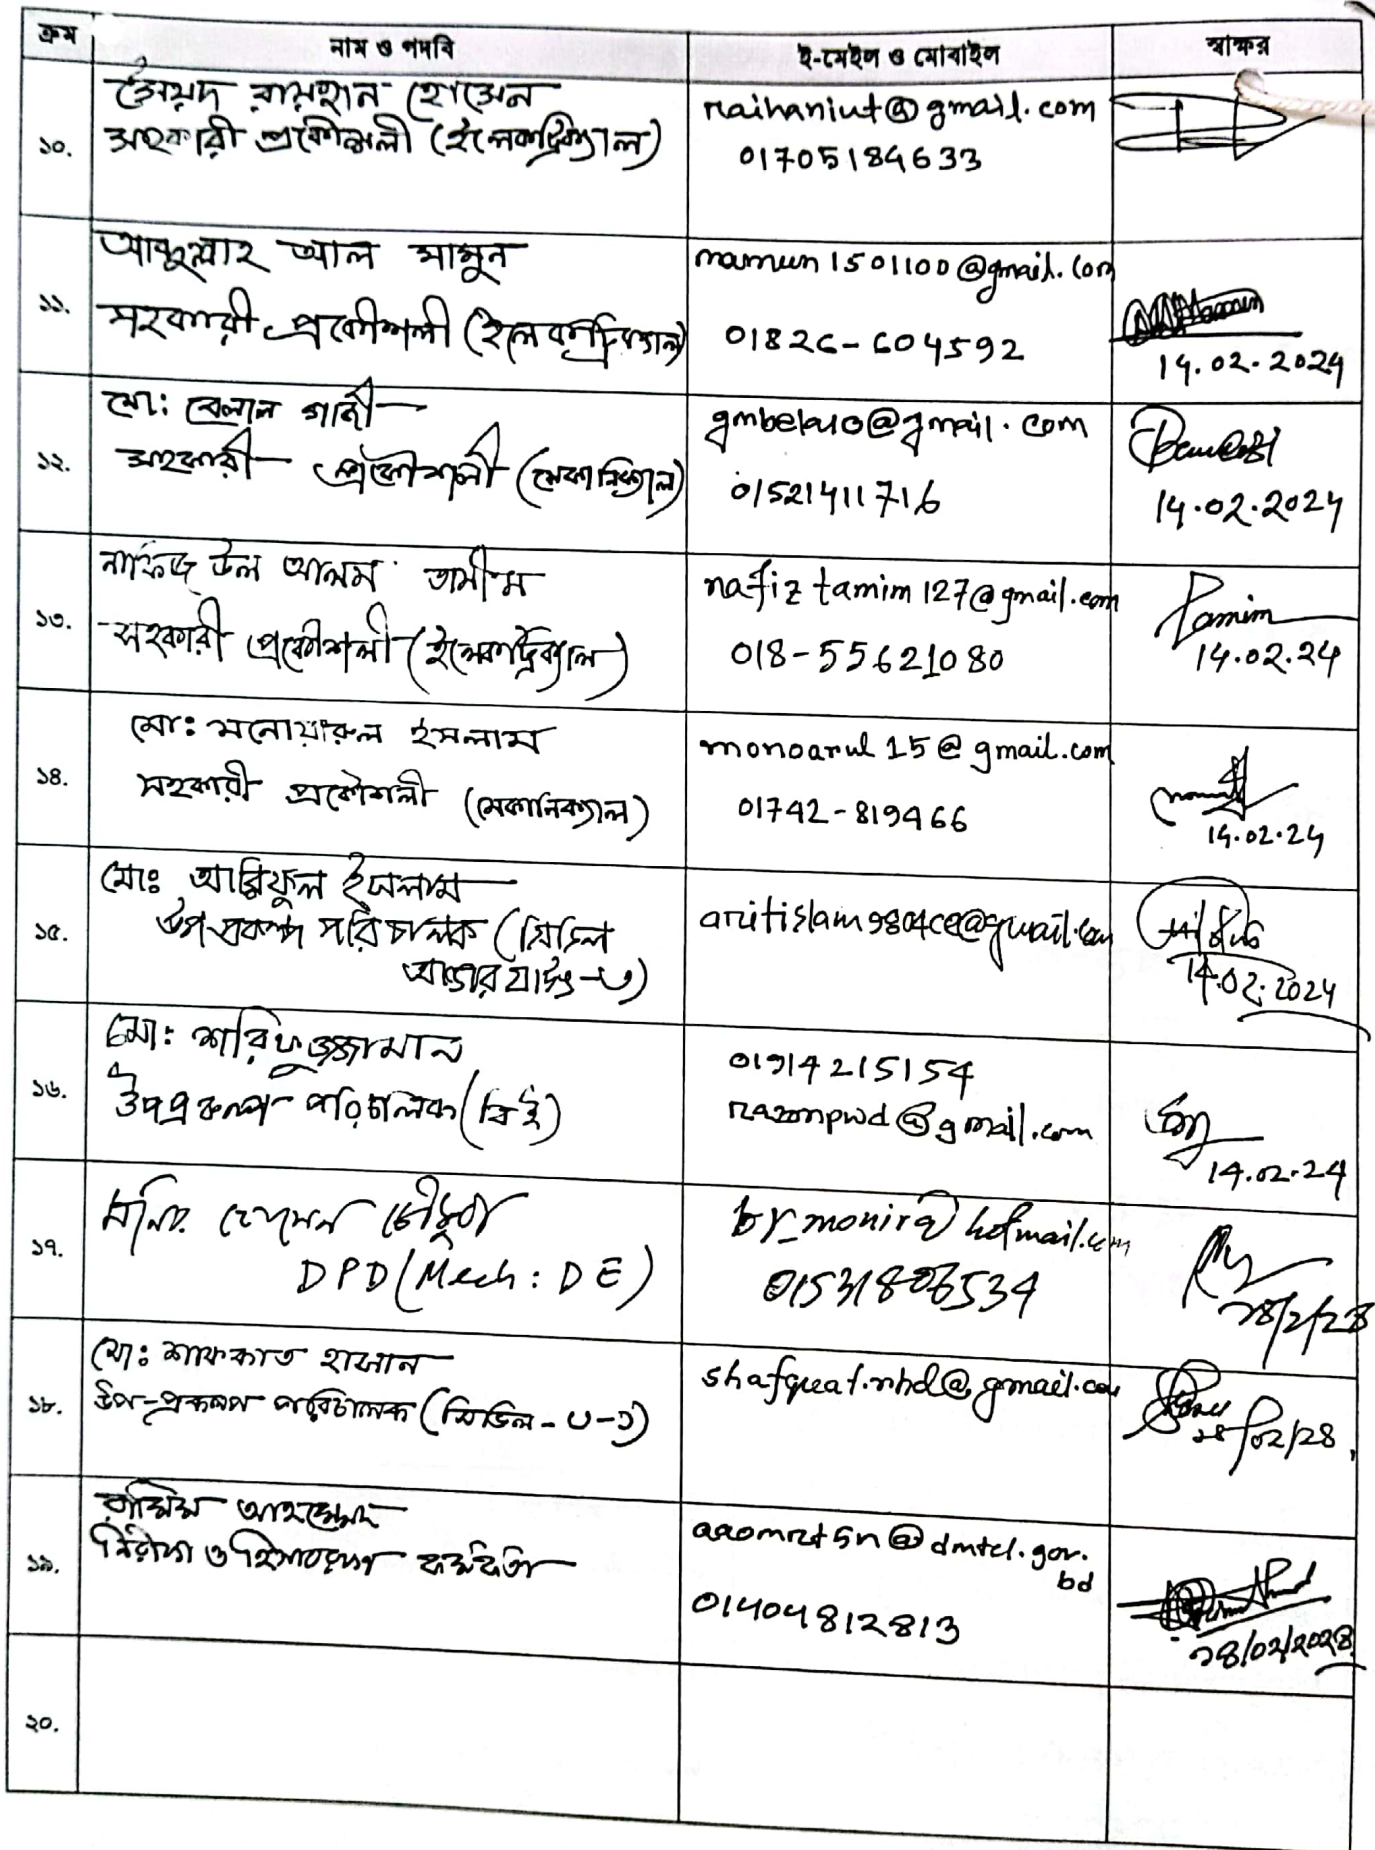 ক্রম নাম ও পদবি ই-মেইল ও মোবাইল স্বাক্ষর
১০. সৈয়দ রায়হান হোসেন
সহকারী প্রকৌশলী (ইলেকট্রিক্যাল)
raihaniut@gmail.com
01705184633
১১. আব্দুল্লাহ আল মামুন
সহকারী প্রকৌশলী (ইলেকট্রিক্যাল)
mamun1501100@gmail.com
01826-604592
14.02.2024
১২. মো: বেলাল গাজী
সহকারী প্রকৌশলী (মেকানিক্যাল)
01521411716
14.02.2024
১৩. নাফিজ উল আলম তামীম
সহকারী প্রকৌশলী (ইলেকট্রিক্যাল)
nafiz tamim 127@gmail.com
018-55621080
Tamim
14.02.24
১৪. মো: মনোয়ারুল ইসলাম
সহকারী প্রকৌশলী (মেকানিক্যাল)
monoarul15@gmail.com
01742-819466
14.02.24
১৫. মোঃ আরিফুল ইসলাম
উপ-প্রকল্প পরিচালক (সিভিল
14.02.2024
১৬. মো: শরিফুজ্জামান
উপপ্রকল্প পরিচালক (বিই)
01914215154
razonpwd@gmail.com
14.02.24
১৭. মনির হোসেন চৌধুরী
DPD (Mech: DE)
br_monir@hotmail.com
১৪/২/২৪
১৮. মো: শাফকাত হাসান
উপ-প্রকল্প পরিচালক (সিভিল-
@gmail.com
১৪/০২/২৪
১৯. আহম্মেদ
নিরীক্ষা ও হিসাবরক্ষণ কর্মকর্তা
aaomrt5n@dmtcl.gov.
bd
01404812813
১৪/০২/২০২৪
২০.